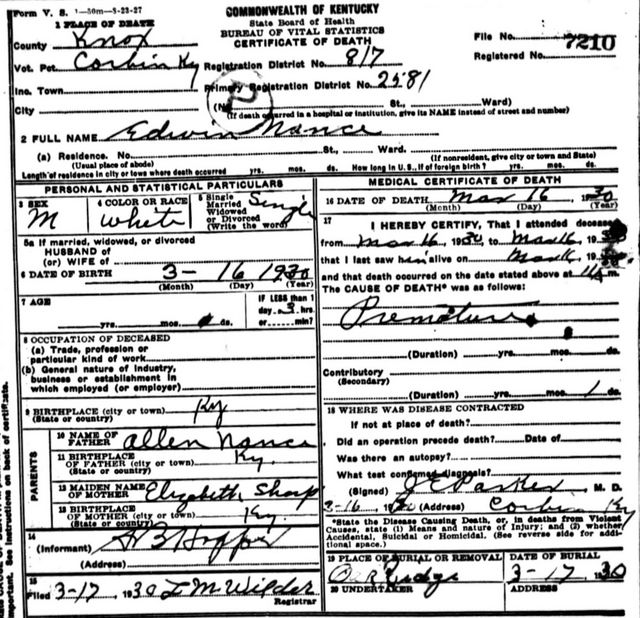 Form V. S. 1—50m—8-23-27
COMMONWEALTH OF KENTUCKY
State Board of Health
BUREAU OF VITAL STATISTICS
CERTIFICATE OF DEATH
1 PLACE OF DEATH
County Knox
File No. 7210
Vot. Pct. Corbin Ky Registration District No. 817
Registered No.
Inc. Town Primary Registration District No. 2581
City (No. St., Ward)
(If death occurred in a hospital or institution, give its NAME instead of street and number)
2 FULL NAME Edwin Nance
(a) Residence. No. St., Ward.
(Usual place of abode) (If nonresident, give city or town and State)
Length of residence in city or town where death occurred yrs. mos. ds. How long in U.S., if of foreign birth? yrs. mos. ds.
PERSONAL AND STATISTICAL PARTICULARS
3 SEX M
4 COLOR OR RACE white
5 Single Married Widowed or Divorced (Write the word) Single
5a If married, widowed, or divorced
HUSBAND of
(or) WIFE of
6 DATE OF BIRTH 3— 16 1930
(Month) (Day) (Year)
7 AGE
yrs. mos. ds.
IF LESS than 1
day 3 hrs.
or min?
8 OCCUPATION OF DECEASED
(a) Trade, profession or
particular kind of work
(b) General nature of industry,
business or establishment in
which employed (or employer)
9 BIRTHPLACE (city or town) Ky
(State or country)
PARENTS
10 NAME OF
FATHER Allen Nance
11 BIRTHPLACE
OF FATHER (city or town) Ky.
(State or country)
12 MAIDEN NAME
OF MOTHER Elizabeth Sharp
13 BIRTHPLACE
OF MOTHER (city or town) Ky.
(State or country)
14
(Informant) H B
(Address)
15
Filed 3-17, 1930 L M Wilder
Registrar
MEDICAL CERTIFICATE OF DEATH
16 DATE OF DEATH Mar 16 1930
(Month) (Day) (Year)
17
I HEREBY CERTIFY, That I attended deceased
from Mar 16, 1930 to Mar 16, 1930
that I last saw him alive on Mar 16, 1930
and that death occurred on the date stated above at m.
The CAUSE OF DEATH* was as follows:
Premature
(Duration) yrs. mos. ds.
Contributory
(Secondary)
(Duration) yrs. mos. 1 ds.
18 WHERE WAS DISEASE CONTRACTED
If not at place of death?
Did an operation precede death? Date of
Was there an autopsy?
What test confirmed diagnosis?
(Signed) J E Parker M. D.
3-16 1930 (Address) Corbin Ky
*State the Disease Causing Death, or, in deaths from Violent
Causes, state (1) Means and nature of Injury; and (2) whether
Accidental, Suicidal or Homicidal. (See reverse side for addi-
tional space.)
19 PLACE OF BURIAL OR REMOVAL DATE OF BURIAL
Ridge 3-17 1930
20 UNDERTAKER ADDRESS
important. See instructions on back of certificate.